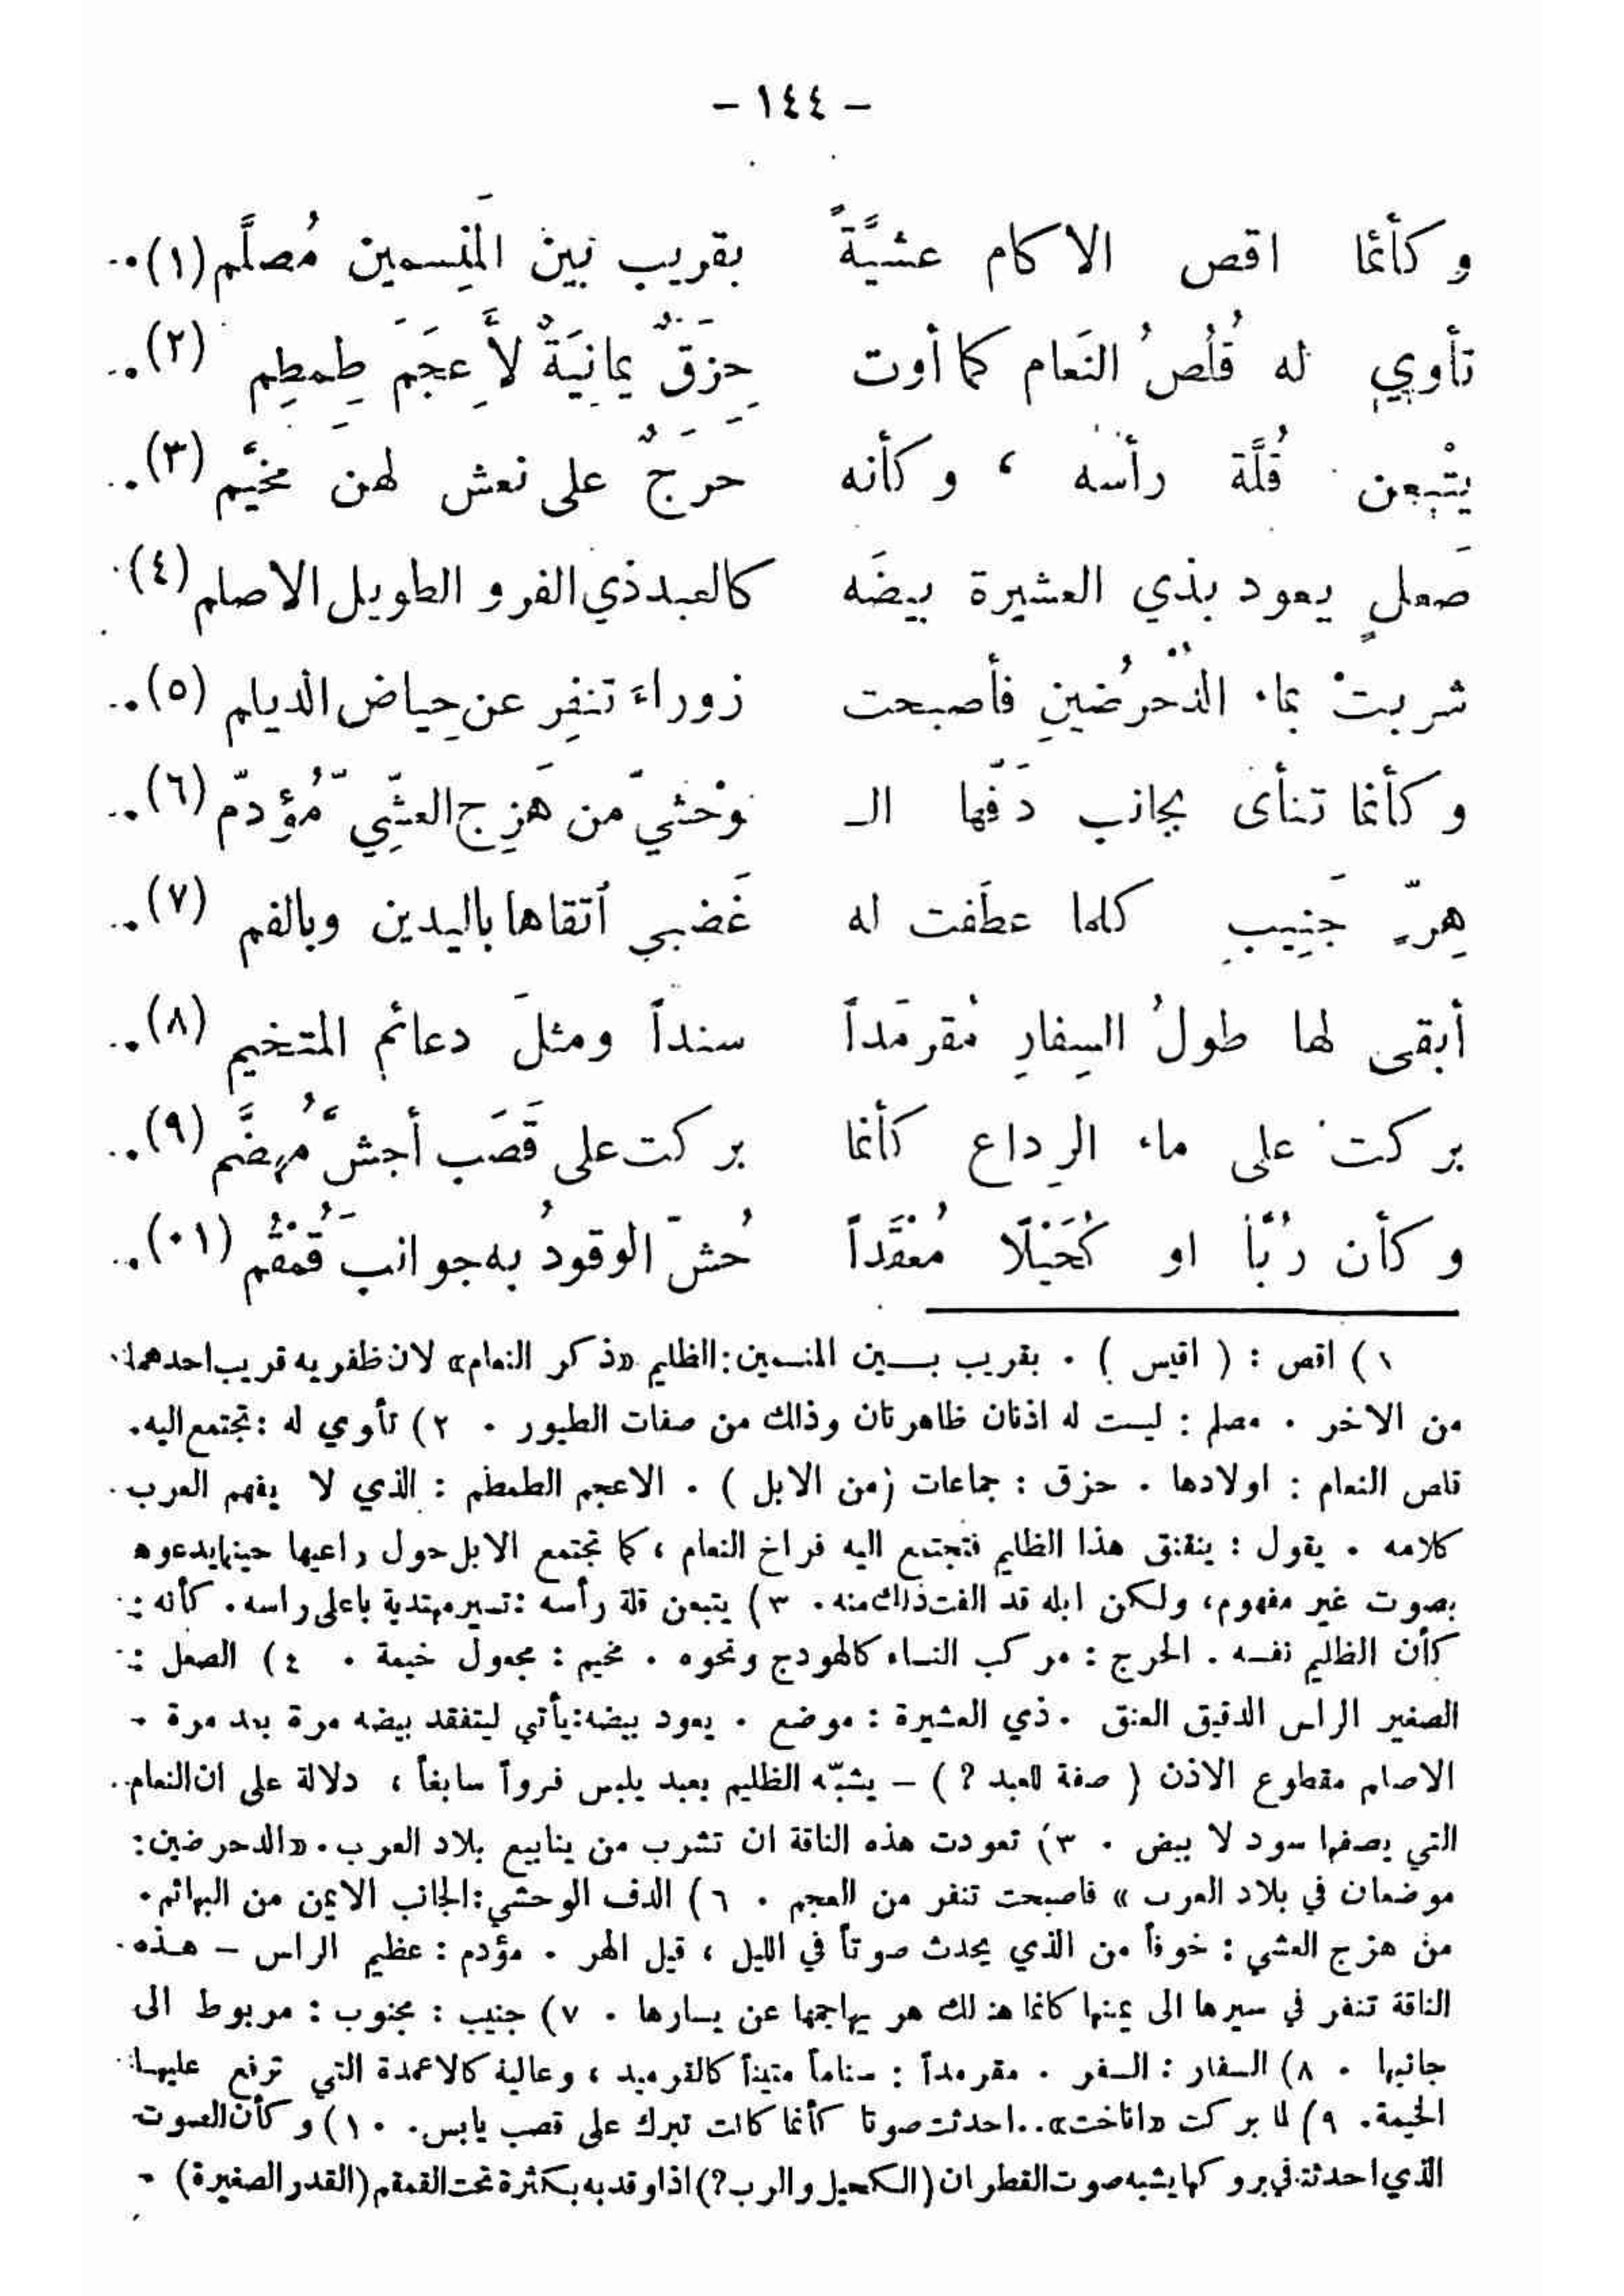 - ١٤٤ -
وكأنما اقص الاكام عشيَّةً بقريب بين المَنسِمين مُصلَّم (١) ..
تأوي له قُلُصُ النَعام كما أوت حِزَقٌ يمانِيَةٌ لأَعجَمَ طِمطِم (٢) ..
يتْبعن قُلَّة رأسه ، وكأنه حَرَجٌ على نعش لهن مخيَّم (٣) ..
صَعلٍ يعود بذي العشيرة بيضَه كالعبد ذي الفرو الطويل الاصلم (٤) .
شربتْ بماء الدُحرُضينِ فأصبحت زوراءَ تنفِر عن حِياض الديلم (٥) ..
وكأنما تنأى بجانب دَفّها الـ وحْشيّ من هَزِج العشِّي مُؤدّم (٦) ..
هِرّ جَنِيبٍ كلما عطَفت له غَضبى اتقاها باليدين وبالفم (٧) ..
أبقى لها طولُ السِفارِ مُقرمَداً سنداً ومثلَ دعائم المتخيم (٨) ..
بركت على ماء الرِداع كأنما بركت على قَصَب أجشَّ مُهضَّم (٩) ..
وكأن رُبّاً او كُحَيْلًا مُعْقَداً حُشّ الوقودُ به جوانبَ قُمْقُم (٠١) ..
١) اقص : ( اقيس ) . بقريب بين المنسمين : الظليم «ذكر النعام» لان ظفريه قريب احدهما
من الاخر . مصلم : ليست له اذنان ظاهرتان وذلك من صفات الطيور . ٢) تأوي له : تجتمع اليه .
قلص النعام : اولادها . حزق : جماعات (من الابل ) . الاعجم الطمطم : الذي لا يفهم العرب
كلامه . يقول : ينقنق هذا الظليم فتجتمع اليه فراخ النعام ، كما تجتمع الابل حول راعيها حينما يدعوه
بصوت غير مفهوم، ولكن ابله قد الفت ذلك منه . ٣) يتبعن قلة رأسه : تسير مهتدية باعلى راسه . كأنه :
كأن الظليم نفسه . الحرج : مركب النساء كالهودج ونحوه . مخيم : مجعول خيمة . ٤) الصعل :
الصغير الراس الدقيق العنق . ذي العشيرة : موضع . يعود بيضه : يأتي ليتفقد بيضه مرة بعد مرة -
الاصلم مقطوع الاذن ( صفة للعبد ? ) – يشبّه الظليم بعبد يلبس فرواً سابغاً ، دلالة على ان النعام
التي يصفها سود لا بيض . ٣) تعودت هذه الناقة ان تشرب من ينابيع بلاد العرب . «الدحرضين :
موضعان في بلاد العرب » فاصبحت تنفر من العجم . ٦) الدف الوحشي : الجانب الايمن من البهائم .
من هزج العشي : خوفاً من الذي يحدث صوتاً في الليل ، قيل الهر . مؤدم : عظيم الراس – هذه
الناقة تنفر في سيرها الى يمينها كانما هنالك هر يهاجمها عن يسارها . ٧) جنيب : مجنوب : مربوط الى
جانبها . ٨) السفار : السفر . مقرمداً : سناماً متيناً كالقرميد ، وعالية كالاعمدة التي ترفع عليها
الخيمة . ٩) لما بركت «اناخت» .. احدثت صوتا كأنما كانت تبرك على قصب يابس . ٠١) وكأن الصوت
الذي احدثته في بروكها يشبه صوت القطران (الكحيل والرب?) اذا اوقد به بكثرة تحت القمقم (القدر الصغيرة) -